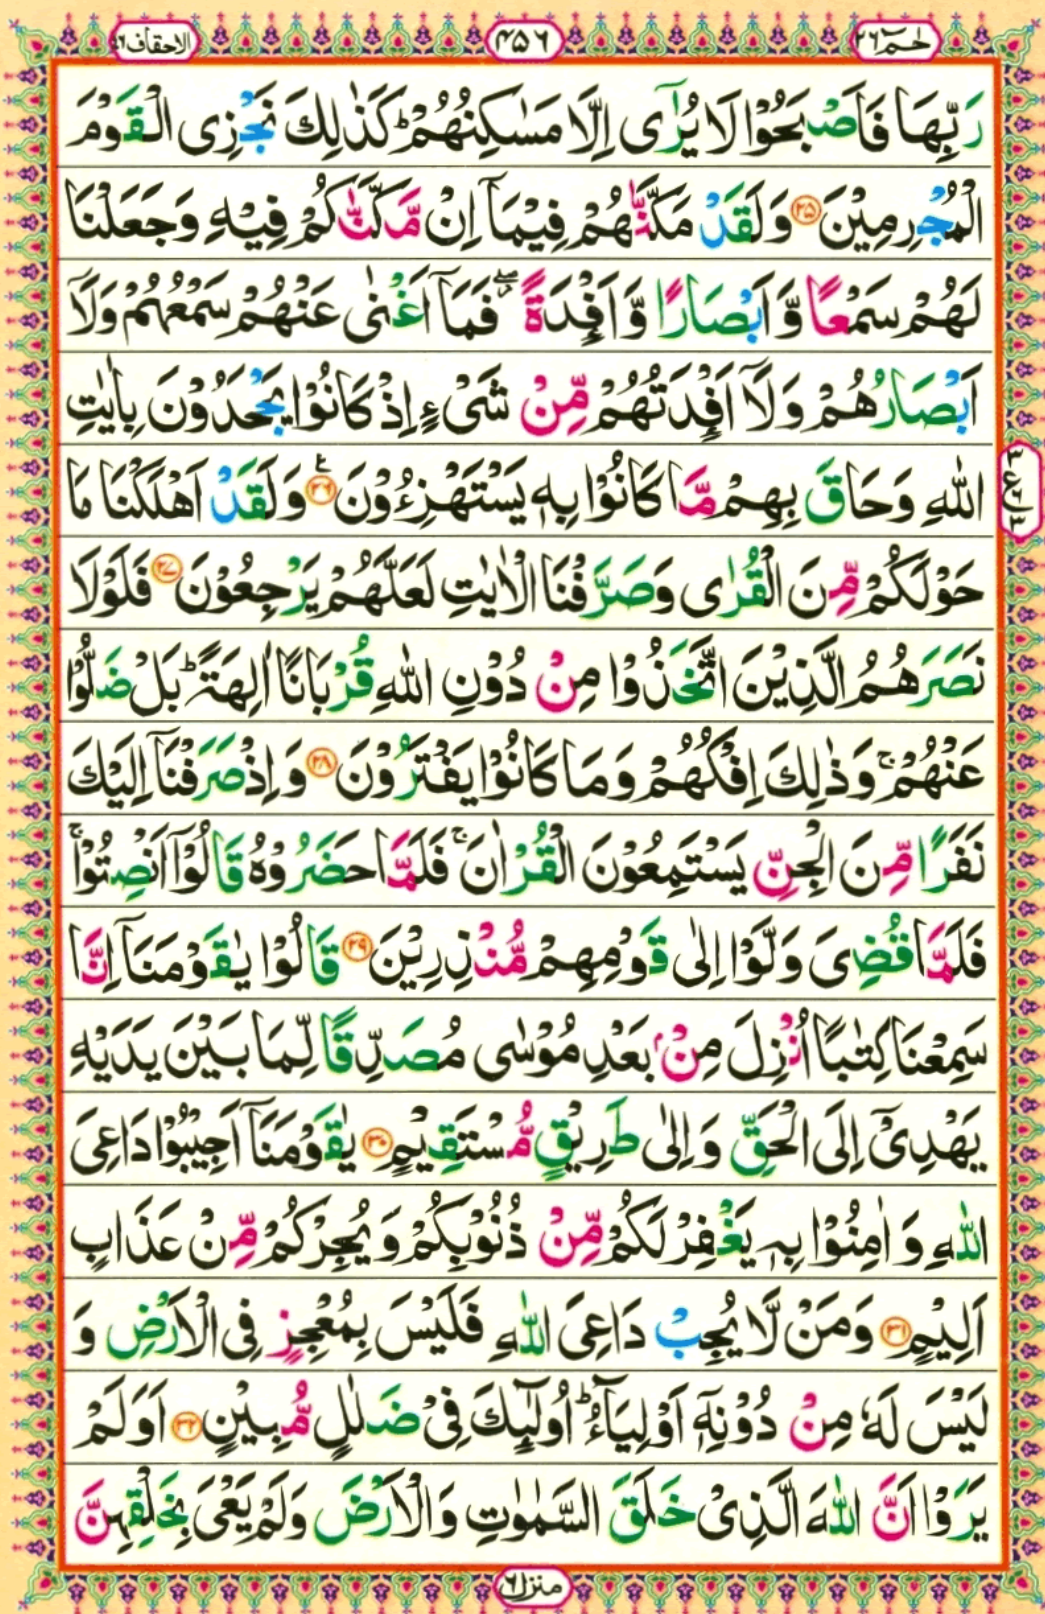 الاحقاف ٤٦
٤٥٦
حٰمٓ ٢٦
رَبِّهَا فَاَصْبَحُوْا لَا يُرٰٓى اِلَّا مَسٰكِنُهُمْ ؕ كَذٰلِكَ نَجْزِى الْقَوْمَ
الْمُجْرِمِيْنَ ﴿۲۵﴾ وَلَقَدْ مَكَّنّٰهُمْ فِيْمَاۤ اِنْ مَّكَّنّٰكُمْ فِيْهِ وَجَعَلْنَا
لَهُمْ سَمْعًا وَّاَبْصَارًا وَّاَفْـِٕدَةً ۖ فَمَاۤ اَغْنٰى عَنْهُمْ سَمْعُهُمْ وَلَاۤ
اَبْصَارُهُمْ وَلَاۤ اَفْـِٕدَتُهُمْ مِّنْ شَىْءٍ اِذْ كَانُوْا يَجْحَدُوْنَ بِاٰيٰتِ
اللّٰهِ وَحَاقَ بِهِمْ مَّا كَانُوْا بِهٖ يَسْتَهْزِءُوْنَ ﴿۲۶﴾ وَلَقَدْ اَهْلَكْنَا مَا
حَوْلَكُمْ مِّنَ الْقُرٰى وَصَرَّفْنَا الْاٰيٰتِ لَعَلَّهُمْ يَرْجِعُوْنَ ﴿۲۷﴾ فَلَوْلَا
نَصَرَهُمُ الَّذِيْنَ اتَّخَذُوْا مِنْ دُوْنِ اللّٰهِ قُرْبَانًا اٰلِهَةً ؕ بَلْ ضَلُّوْا
عَنْهُمْ ۚ وَذٰلِكَ اِفْكُهُمْ وَمَا كَانُوْا يَفْتَرُوْنَ ﴿۲۸﴾ وَاِذْ صَرَفْنَاۤ اِلَيْكَ
نَفَرًا مِّنَ الْجِنِّ يَسْتَمِعُوْنَ الْقُرْاٰنَ ۚ فَلَمَّا حَضَرُوْهُ قَالُوْۤا اَنْصِتُوْا ۚ
فَلَمَّا قُضِىَ وَلَّوْا اِلٰى قَوْمِهِمْ مُّنْذِرِيْنَ ﴿۲۹﴾ قَالُوْا يٰقَوْمَنَاۤ اِنَّا
سَمِعْنَا كِتٰبًا اُنْزِلَ مِنْۢ بَعْدِ مُوْسٰى مُصَدِّقًا لِّمَا بَيْنَ يَدَيْهِ
يَهْدِىْۤ اِلَى الْحَقِّ وَاِلٰى طَرِيْقٍ مُّسْتَقِيْمٍ ﴿۳۰﴾ يٰقَوْمَنَاۤ اَجِيْبُوْا دَاعِىَ
اللّٰهِ وَاٰمِنُوْا بِهٖ يَغْفِرْ لَكُمْ مِّنْ ذُنُوْبِكُمْ وَيُجِرْكُمْ مِّنْ عَذَابٍ
اَلِيْمٍ ﴿۳۱﴾ وَمَنْ لَّا يُجِبْ دَاعِىَ اللّٰهِ فَلَيْسَ بِمُعْجِزٍ فِى الْاَرْضِ وَ
لَيْسَ لَهٗ مِنْ دُوْنِهٖۤ اَوْلِيَآءُ ؕ اُولٰٓئِكَ فِىْ ضَلٰلٍ مُّبِيْنٍ ﴿۳۲﴾ اَوَلَمْ
يَرَوْا اَنَّ اللّٰهَ الَّذِىْ خَلَقَ السَّمٰوٰتِ وَالْاَرْضَ وَلَمْ يَعْىَ بِخَلْقِهِنَّ
ع
منزل ٦